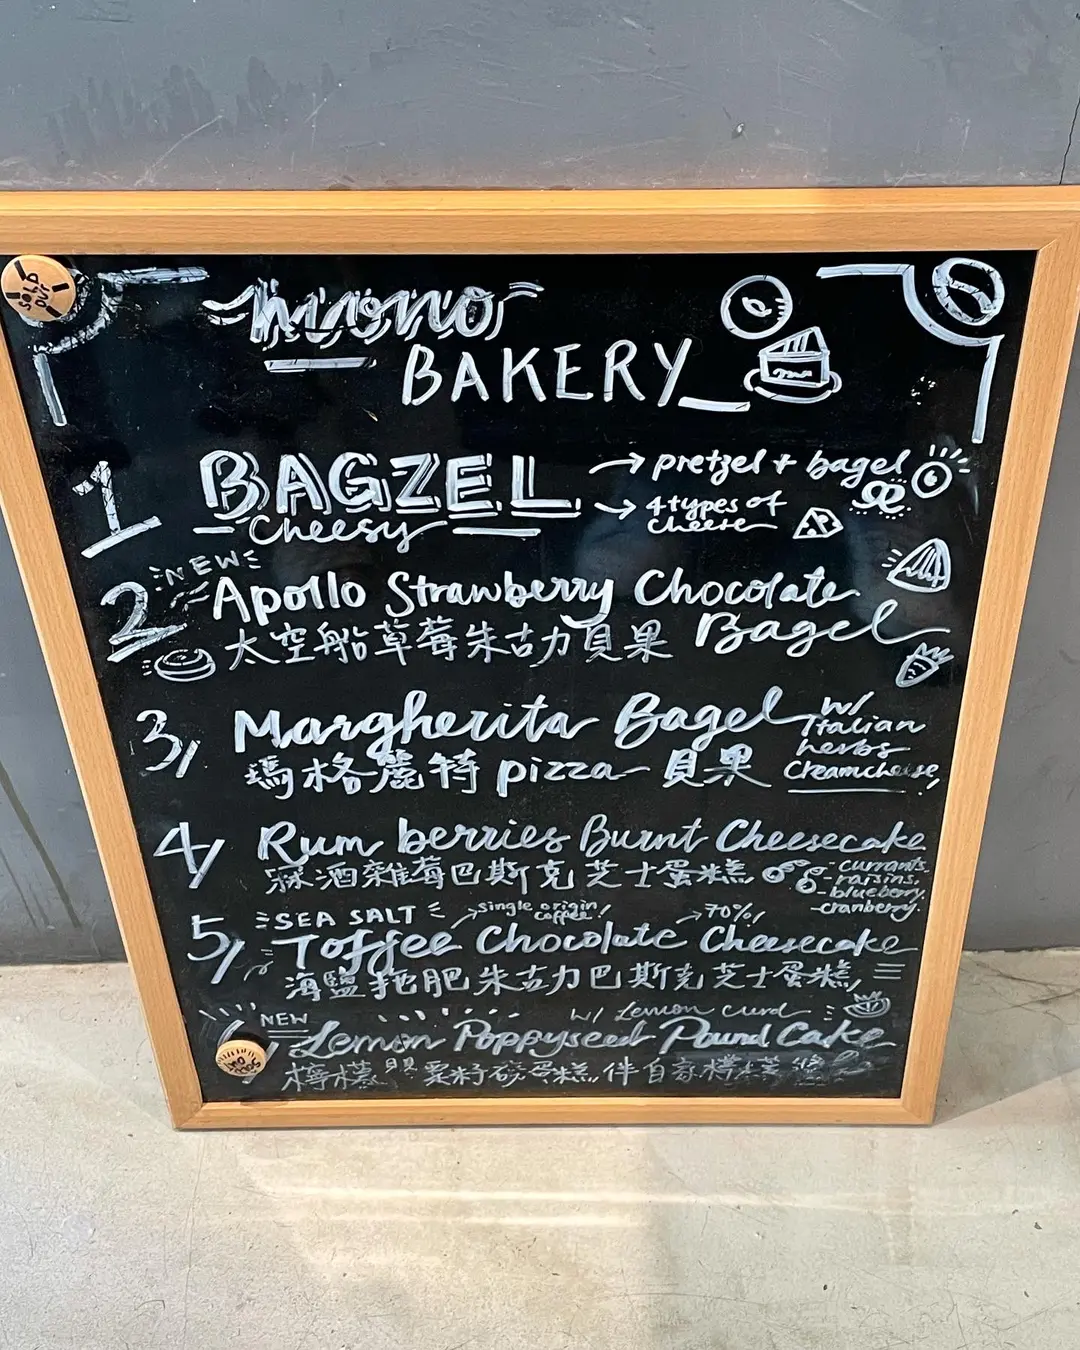 SOLD OUT
BAKERY
1 BAGZEL → pretzel + bagel
Cheesy → 4 types of cheese
NEW
2 Apollo Strawberry Chocolate Bagel
太空船草莓朱古力貝果
3, Margherita Bagel w/ Italian herbs Creamcheese,
瑪格麗特 pizza 貝果
4, Rum berries Burnt Cheesecake
冧酒雜莓巴斯克芝士蛋糕
- currants
- raisins,
- blueberry,
- cranberry.
SEA SALT → single origin coffee! → 70%!
5, Toffee Chocolate Cheesecake
海鹽拖肥朱古力巴斯克芝士蛋糕
NEW w/ Lemon curd
Lemon Poppyseed Pound Cake
檸檬罌粟籽磅蛋糕 伴自家檸檬醬
SOLD OUT